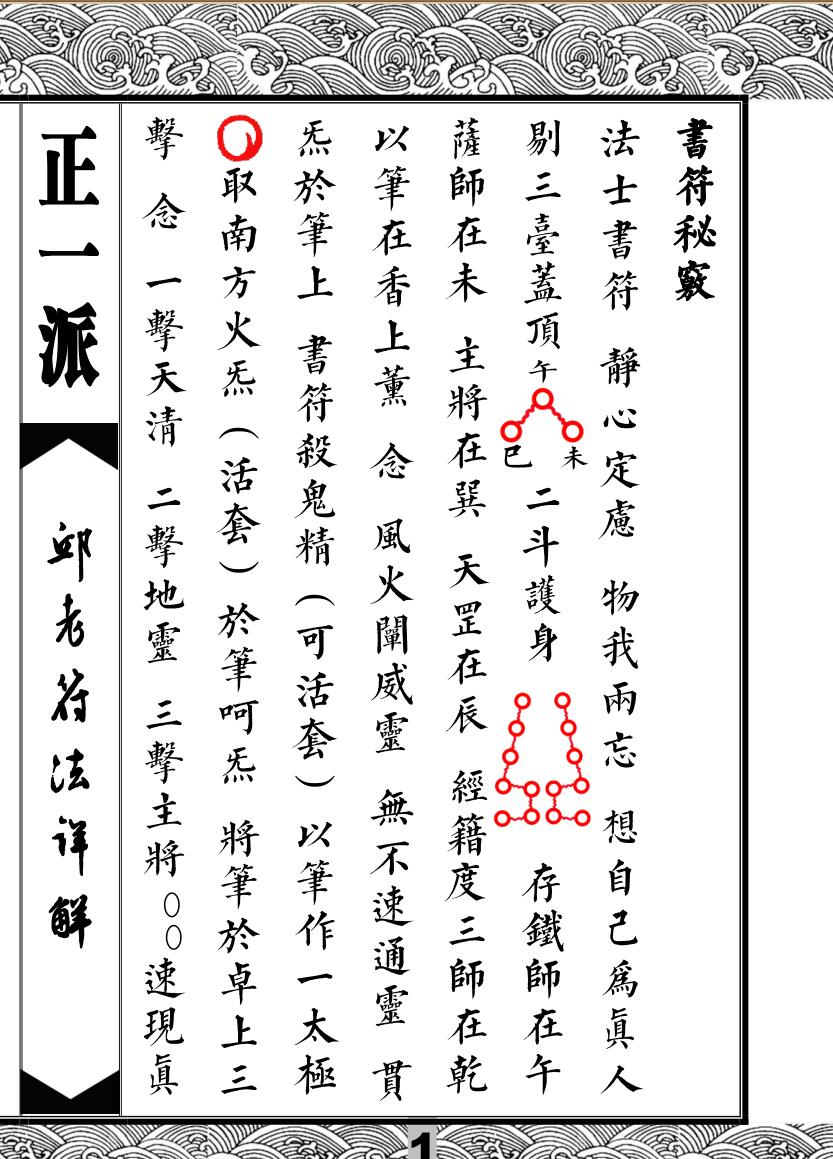 書符秘竅
法士書符 靜心定慮 物我兩忘 想自己爲眞人
剔三臺蓋頂 午 巳 未 二斗護身 存鐵師在午
薩師在未 主將在巽 天罡在辰 經籍度三師在乾
以筆在香上薰 念 風火闡威靈 無不速通靈 貫
炁於筆上 書符殺鬼精（可活套）以筆作一太極
取南方火炁（活套）於筆呵炁 將筆於卓上三
擊 念 一擊天清 二擊地靈 三擊主將○○速現眞
正一派
邱老符法详解
1